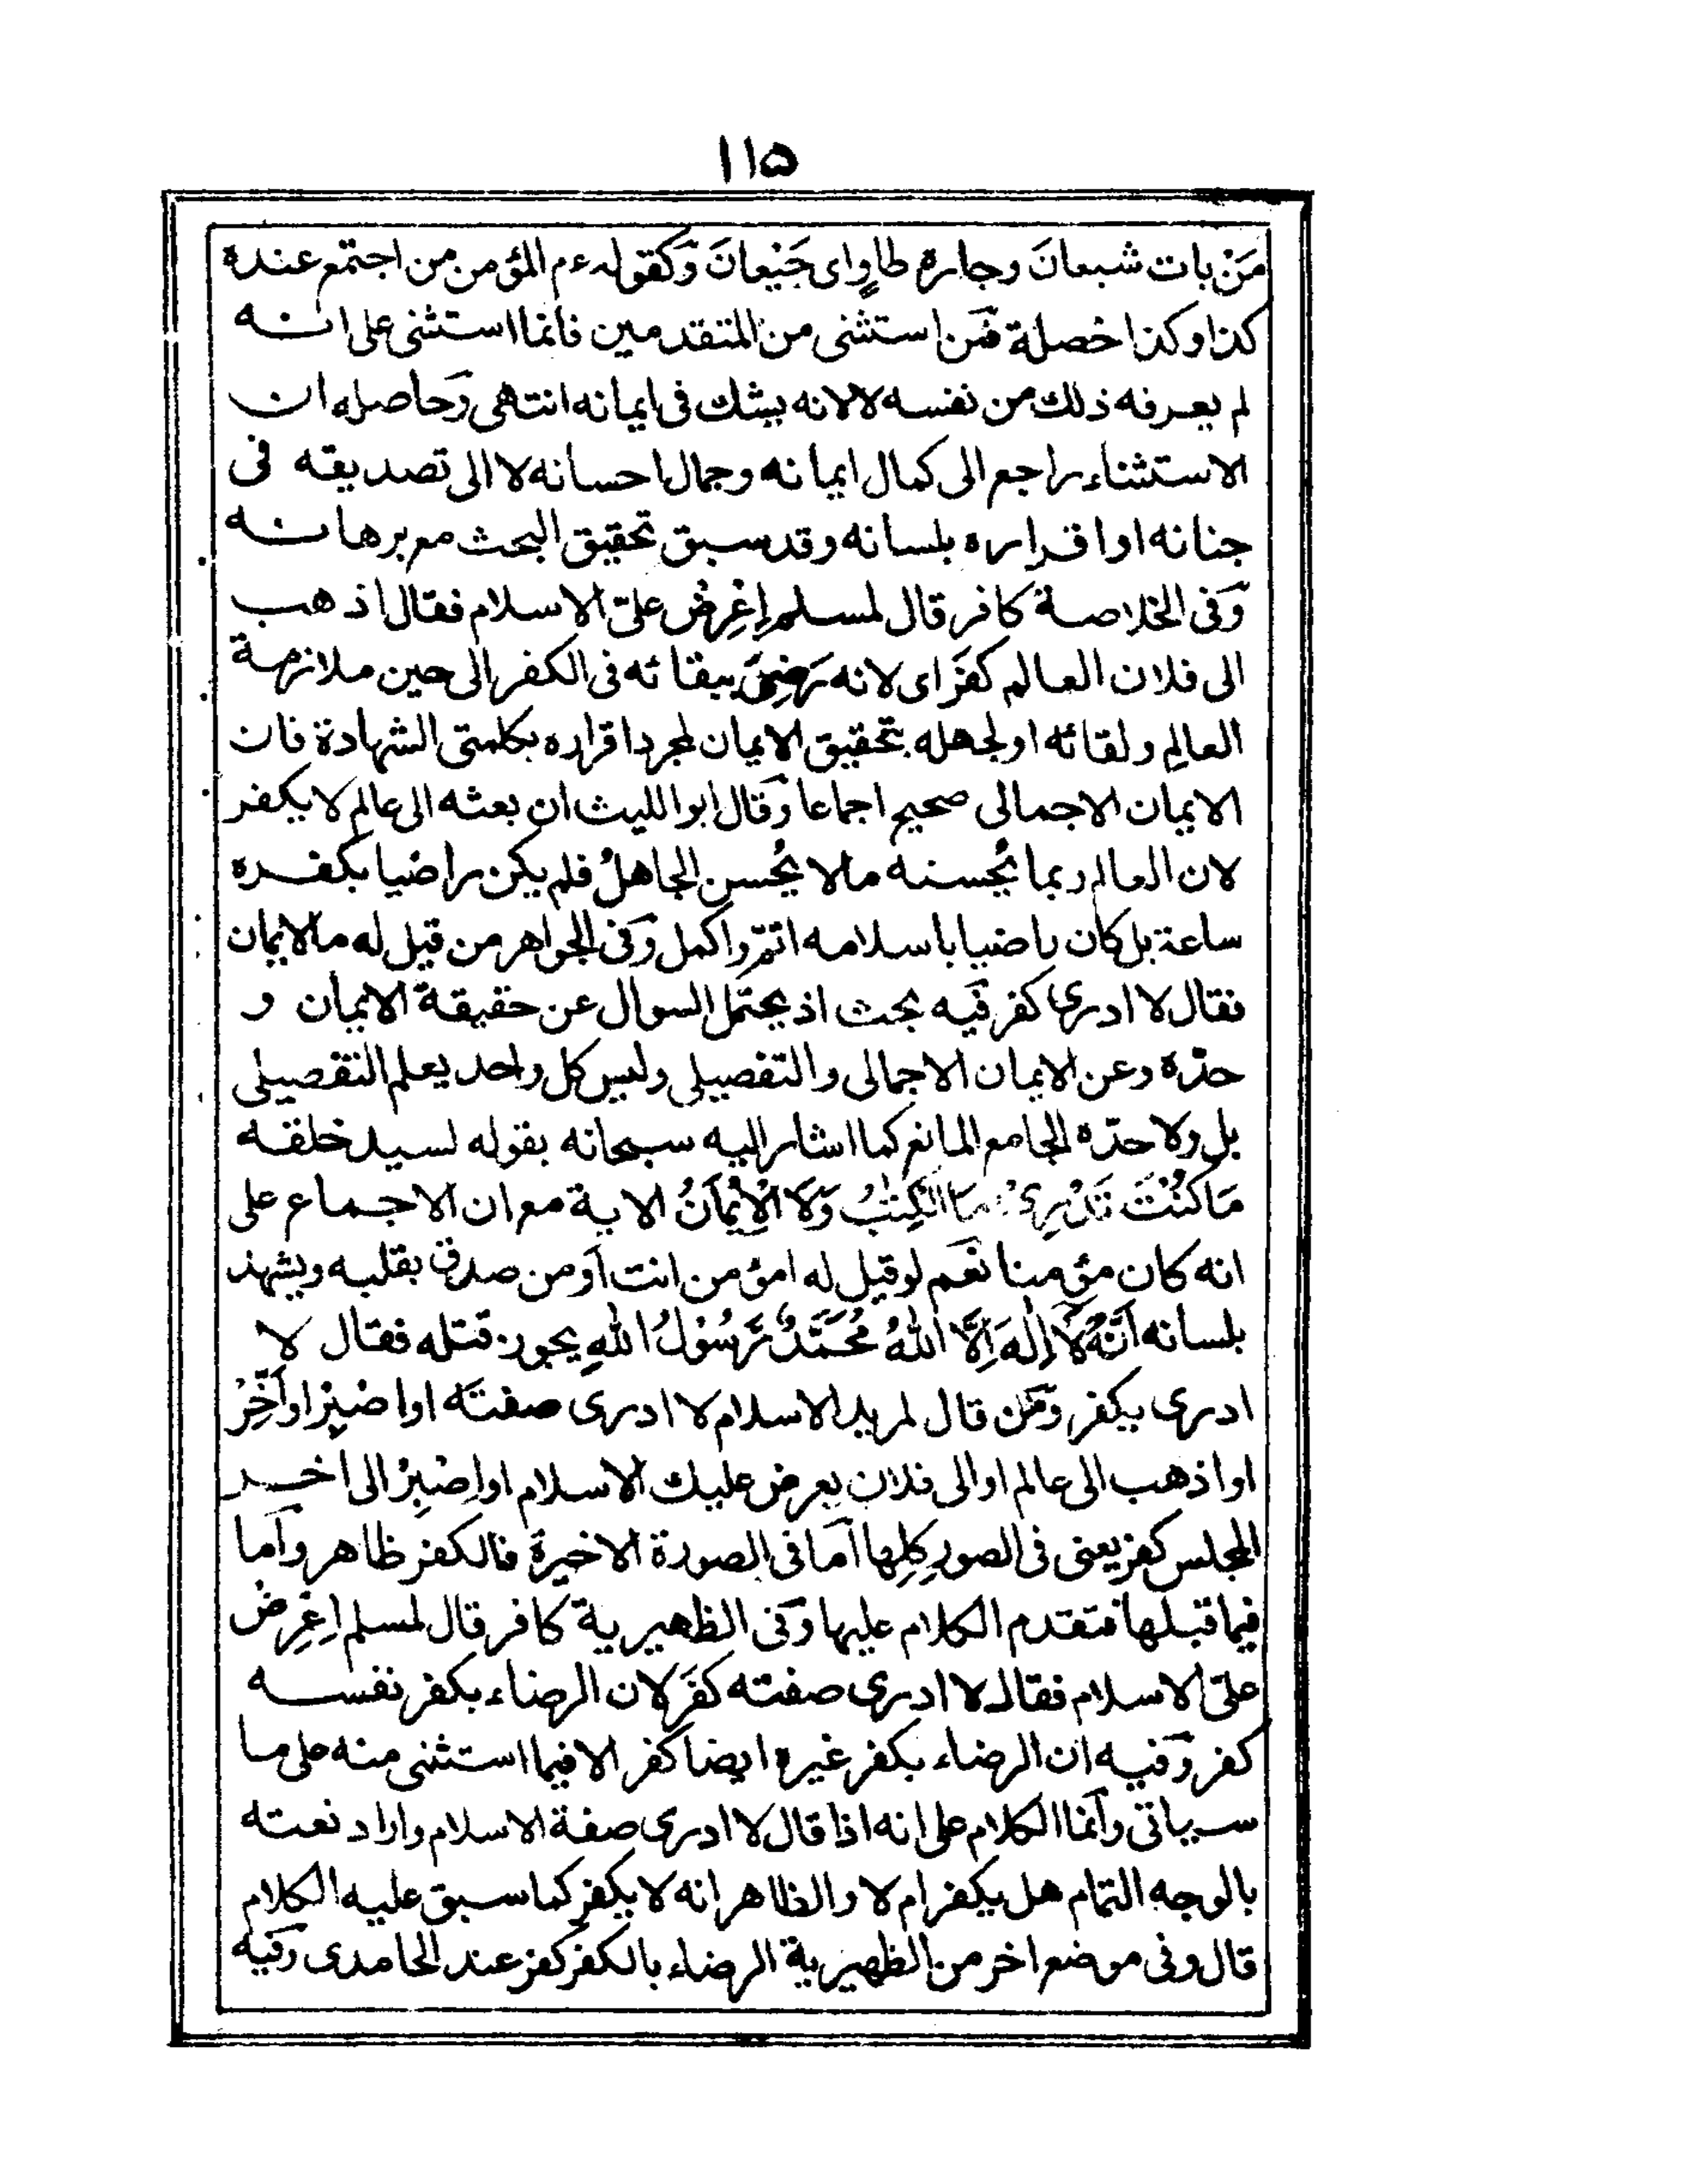 ١١۵
مَنْ بات شبعانَ وجاره طاوٍ اى جَنِيعانَ وَكقوله ءم المؤمن من اجتمع عنده
كذا وكذا خصلة فمَن استثنى من المتقدمين فانما استثنى على انه
لم يعرفه ذلك من نفسه لا لانه يشك فى ايمانه انتهى وَحاصله ان
الاستثناء راجع الى كمال ايمانه وجمال احسانه لا الى تصديقه فى
جنانه او اقراره بلسانه وقد سبق تحقيق البحث مع برهانه
وَفى الخلاصة كافر قال لمسلم اِعْرِضْ علىّ الاسلام فقال اذهب
الى فلان العالم كفَرَ اى لانه رَضِىَ ببقائه فى الكفر الى حين ملازمة
العالِم ولقائه او لجهله بتحقيق الايمان لمجرد اقراره بكلمتى الشهادة فان
الايمان الاجمالى صحيح اجماعا وَقال ابو الليث ان بعثه الى عالم لا يكفر
لان العالم ربما يُحسنه مالا يُحسن الجاهلُ فلم يكن راضيا بكفره
ساعة بل كان راضيا باسلامه اتمّ واكمل وَفى الجواهر من قيل له ما الايمان
فقال لا ادرى كفر فَيه بحث اذ يحتمل السوال عن حقيقة الايمان و
حدّه وعن الايمان الاجمالى والتفصيلى وليس كل واحد يعلم التفصيلى
بل ولا حدّه الجامع المانع كما اشار اليه سبحانه بقوله لسيد خلقه
مَا كُنْتَ تَدْرِىْ مَا الْكِتٰبُ وَلَا الْاِيْمَانُ الاية مع ان الاجماع على
انه كان مؤمنا نعَم لو قيل له امؤمن انت اَو من صدق بقلبه ويشهد
بلسانه اَنَّهٗ لَا اِلٰهَ اِلَّا اللّٰهُ مُحَمَّدٌ رَّسُوْلُ اللّٰهِ يجوز قتله فقال لا
ادرى يكفر وَمَن قال لمريد الاسلام لا ادرى صفتَه او اصْبِرْ او اَخِّرْ
او اذهب الى عالم او الى فلان يعرض عليك الاسلام او اِصْبِرْ الى اخر
المجلس كفر يعنى فى الصور كلِها اَما فى الصورة الاخيرة فالكفر ظاهر واَما
فيما قبلها فتقدم الكلام عليها وَفى الظهيرية كافر قال لمسلم اِعْرِضْ
علىّ الاسلام فقال لا ادرى صفته كفَر لان الرضاء بكفر نفسه
كفر وَفيه ان الرضاء بكفر غيره ايضا كفر الا فيما استثنى منه على ما
سياتى واَنما الكلام على انه اذا قال لا ادرى صفة الاسلام واراد نعته
بالوجه التمام هل يكفر ام لا والظاهر انه لا يكفر كما سبق عليه الكلام
قال وفى موضع اخر من الظهيرية الرضاء بالكفر كفر عند الحامدى وَفيه